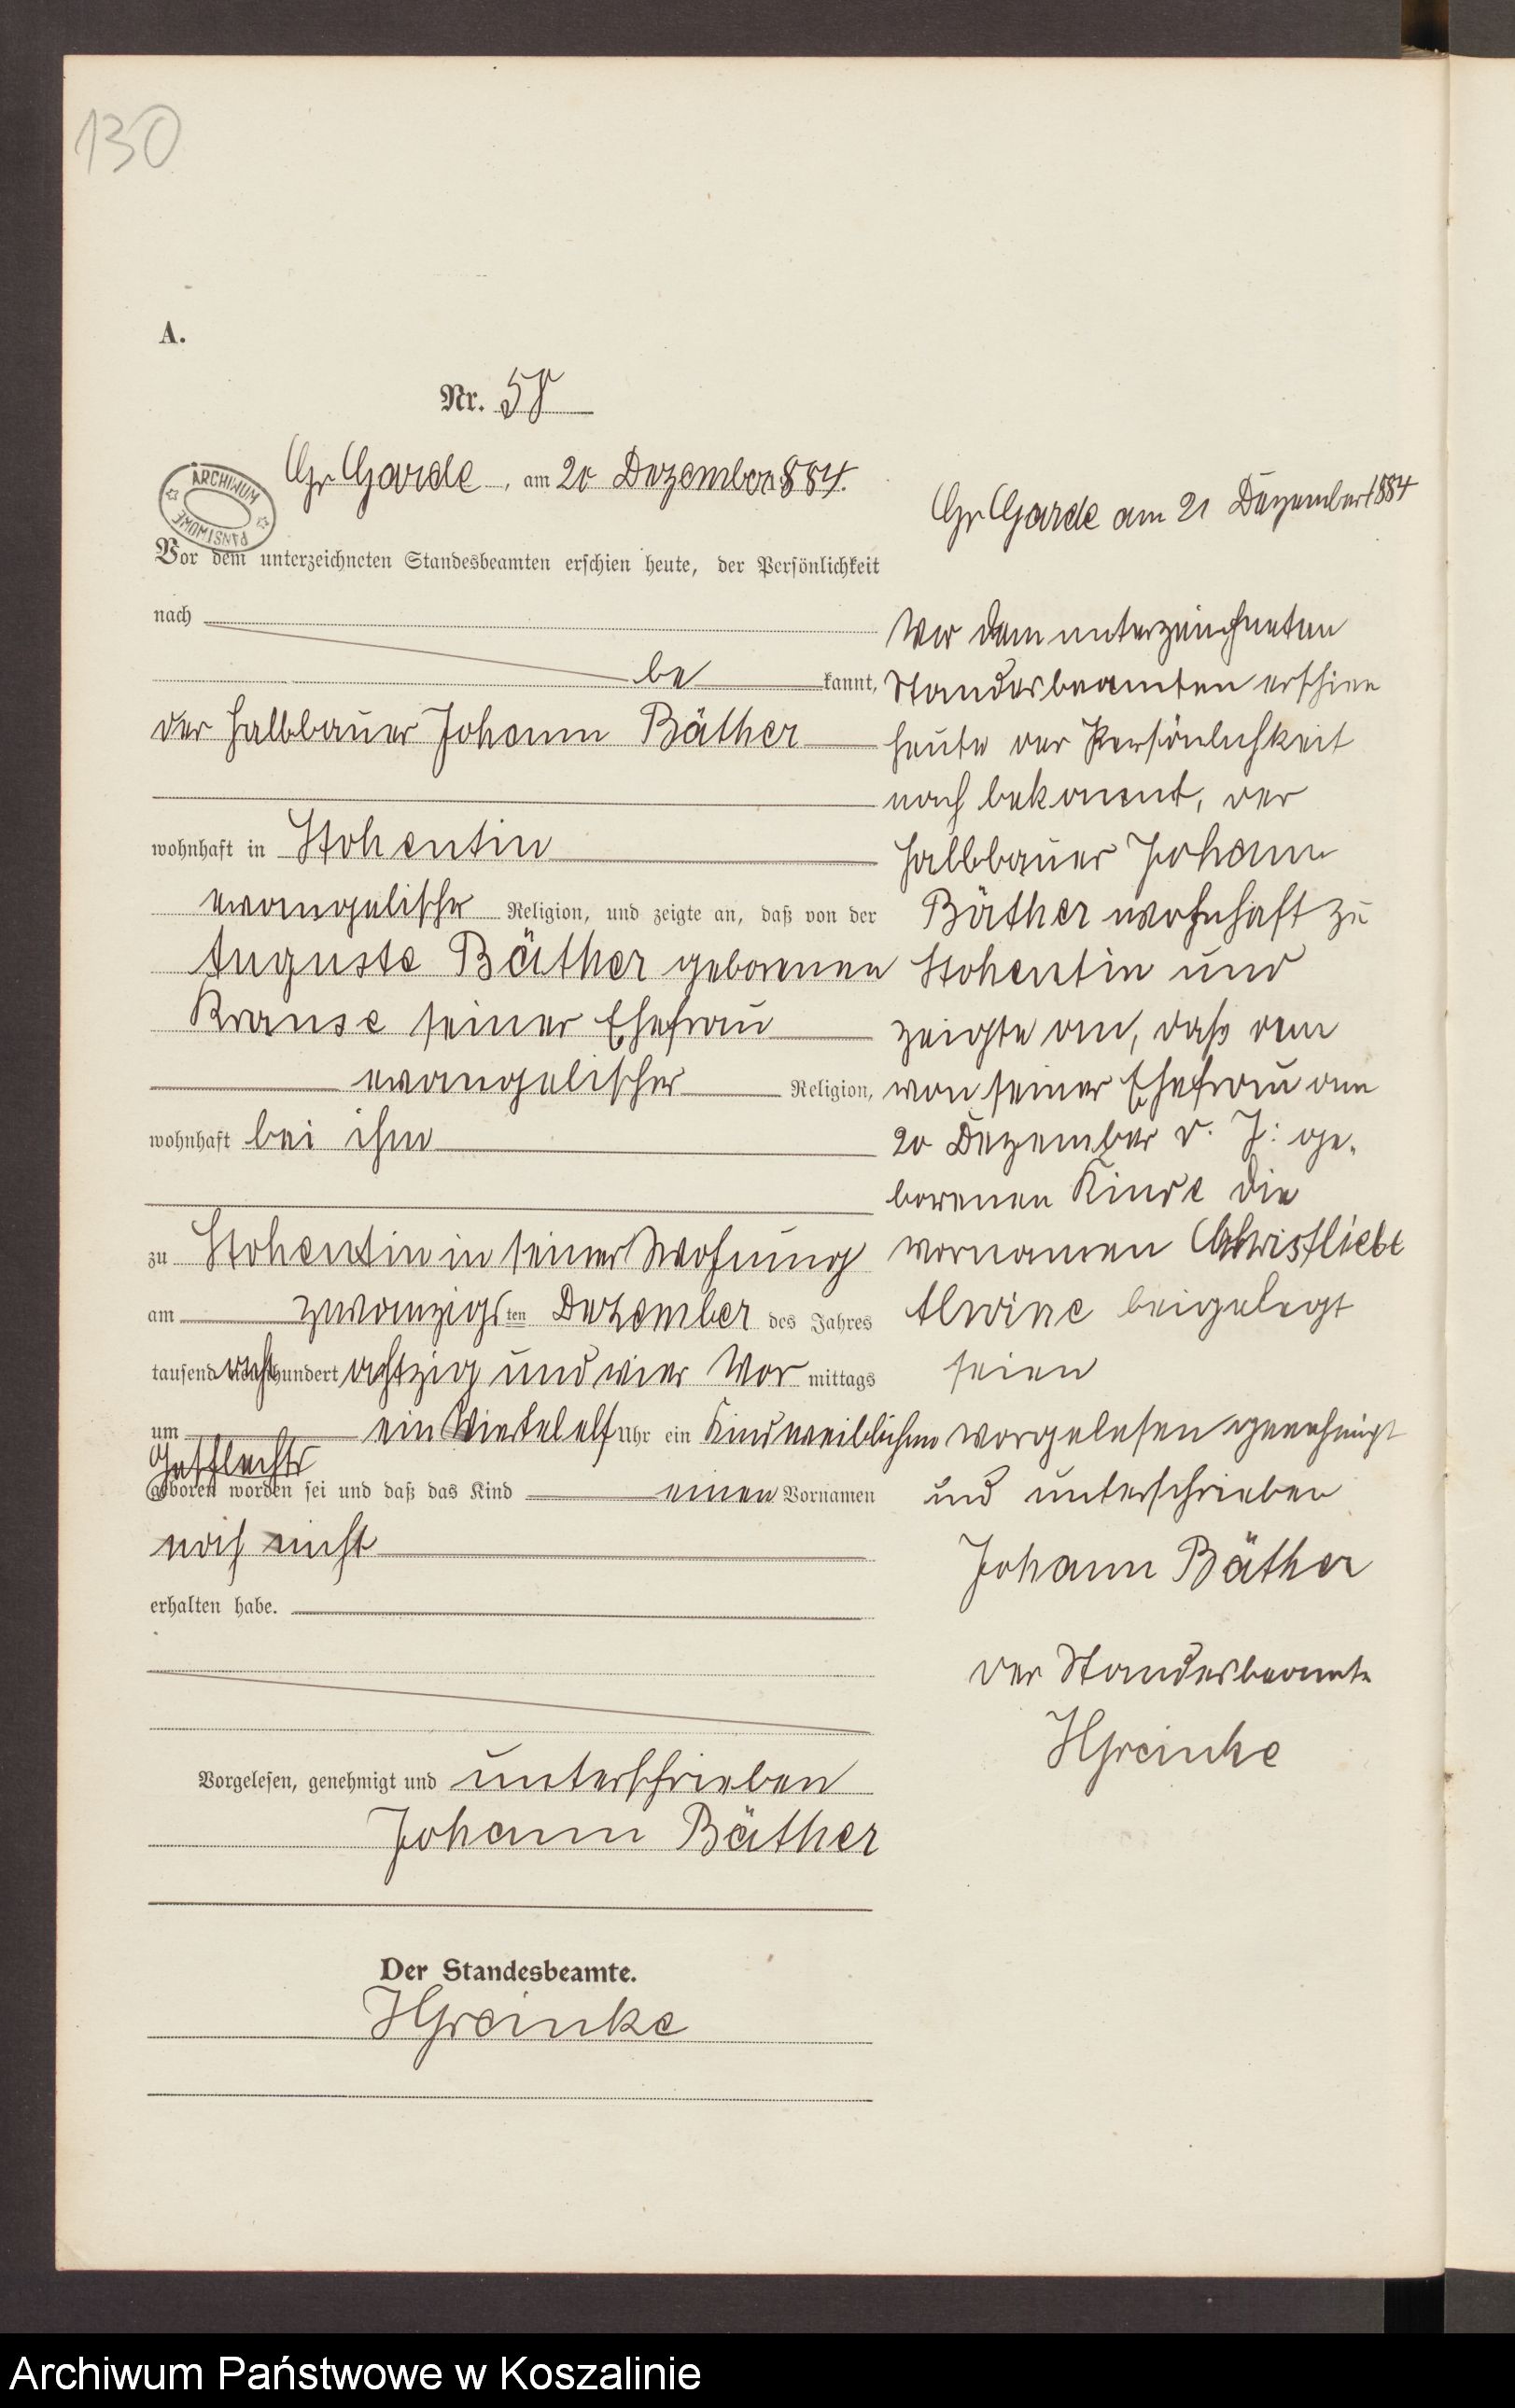 130
A.
Nr. 58
Gr Garde, am 20 Dezember 1884.
ARCHIWUM
PAŃSTWOWE
Vor dem unterzeichneten Standesbeamten erschien heute, der Persönlichkeit
nach
be kannt,
der Halbbauer Johann Bäther
wohnhaft in Stohentin
evangelischer Religion, und zeigte an, daß von der
Auguste Bäther geborenen
Krause seiner Ehefrau
evangelischer Religion,
wohnhaft bei ihm
zu Stohentin in seiner Wohnung
am zwanzigsten Dezember des Jahres
tausend acht hundert achtzig und vier Vor mittags
um ein Viertel elf Uhr ein Kind weiblichen
Geschlechts
geboren worden sei und daß das Kind einen Vornamen
noch nicht
erhalten habe.
Vorgelesen, genehmigt und unterschrieben
Johann Bäther
Der Standesbeamte.
HGreinke
Gr Garde am 21 Dezember 1884
Vor dem unterzeichneten
Standesbeamten erschien
heute der Persönlichkeit
nach bekannt, der
Halbbauer Johann
Bäther wohnhaft zu
Stohentin und
zeigte an, daß dem
von seiner Ehefrau am
20 Dezember d. J: ge-
borenen Kinde die
Vornamen Christliebe
Alwine beigelegt
seien
vorgelesen genehmigt
und unterschrieben
Johann Bäther
der Standesbeamte
HGreinke
Archiwum Państwowe w Koszalinie